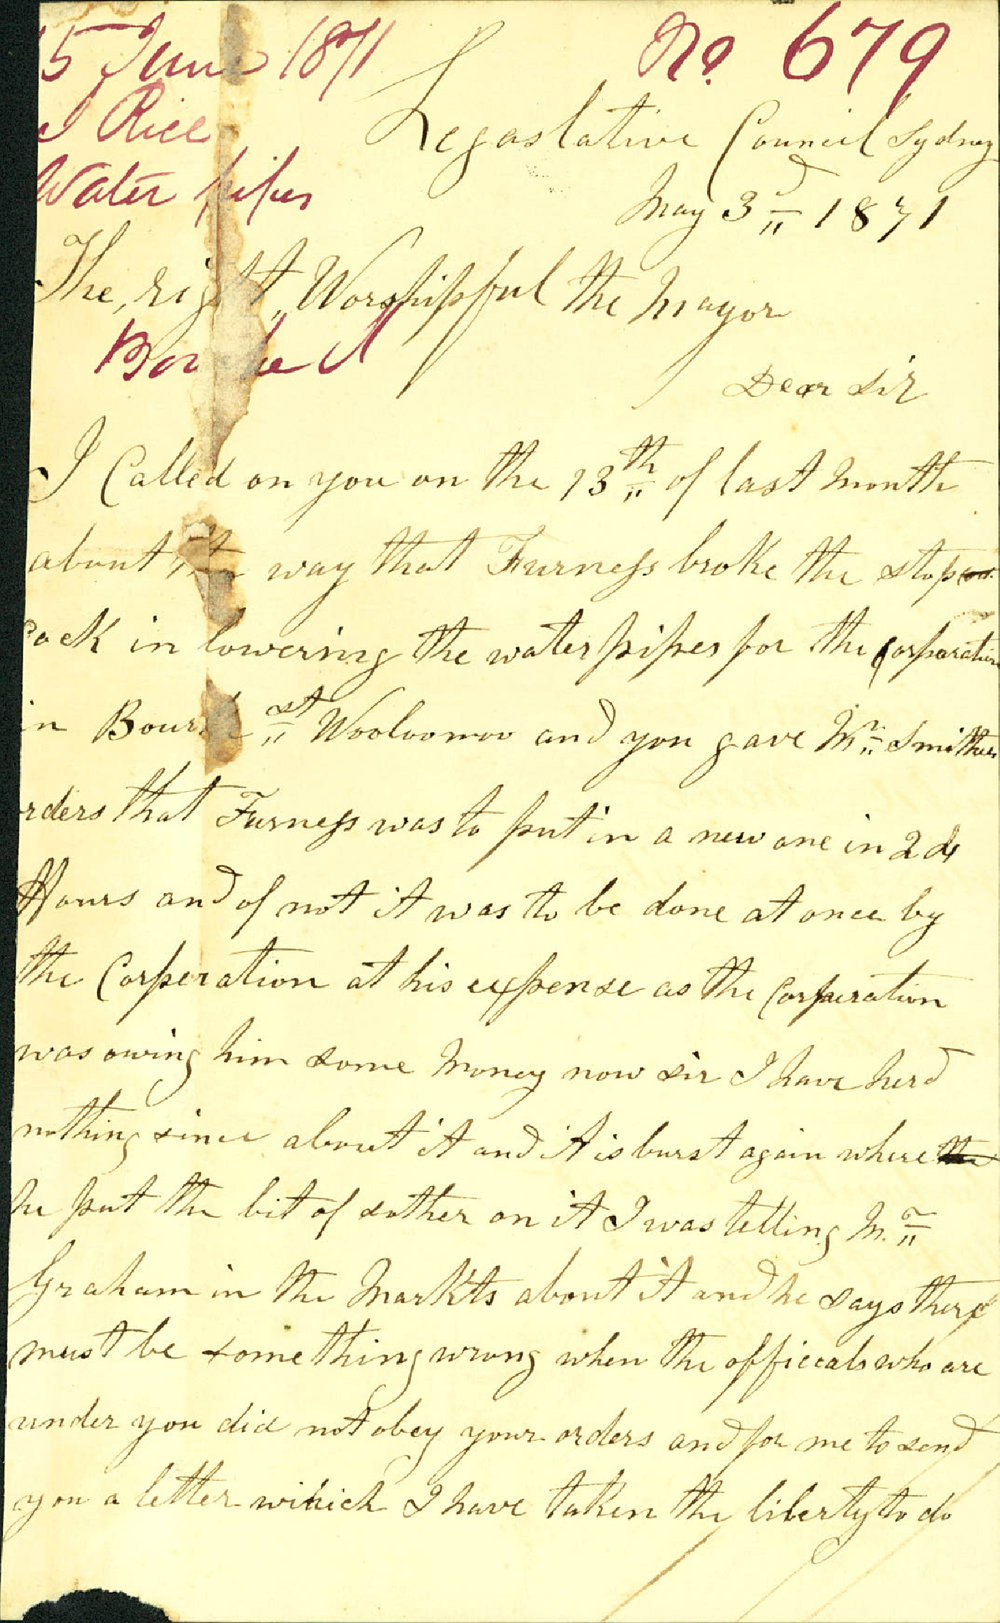 15 June 1871 No. 679
J Rice
Legaslative Council Sydney
Water pipes
May 3d 1871
The, right, Worshipful the Mayor
Bourke St
Dear Sir
I Called on you on the 13th of last Month
about the way that Furness broke the stop
cock in lowering the water pipes for the Corporation
in Bourke St Wooloomoo and you gave Mr Smithers
orders that Furness was to put in a new one in 24
Hours and of not it was to be done at once by
the Corperation at his expense as the Corperation
was owing him some Money now sir I have herd
nothing since about it and it is burst again where the
he put the bit of sother on it I was telling Mr
Graham in the Markts about it and he says there
must be something wrong when the officeals who are
under you did not obey your orders and for me to send
you a letter wihich I have taken the liberty to do